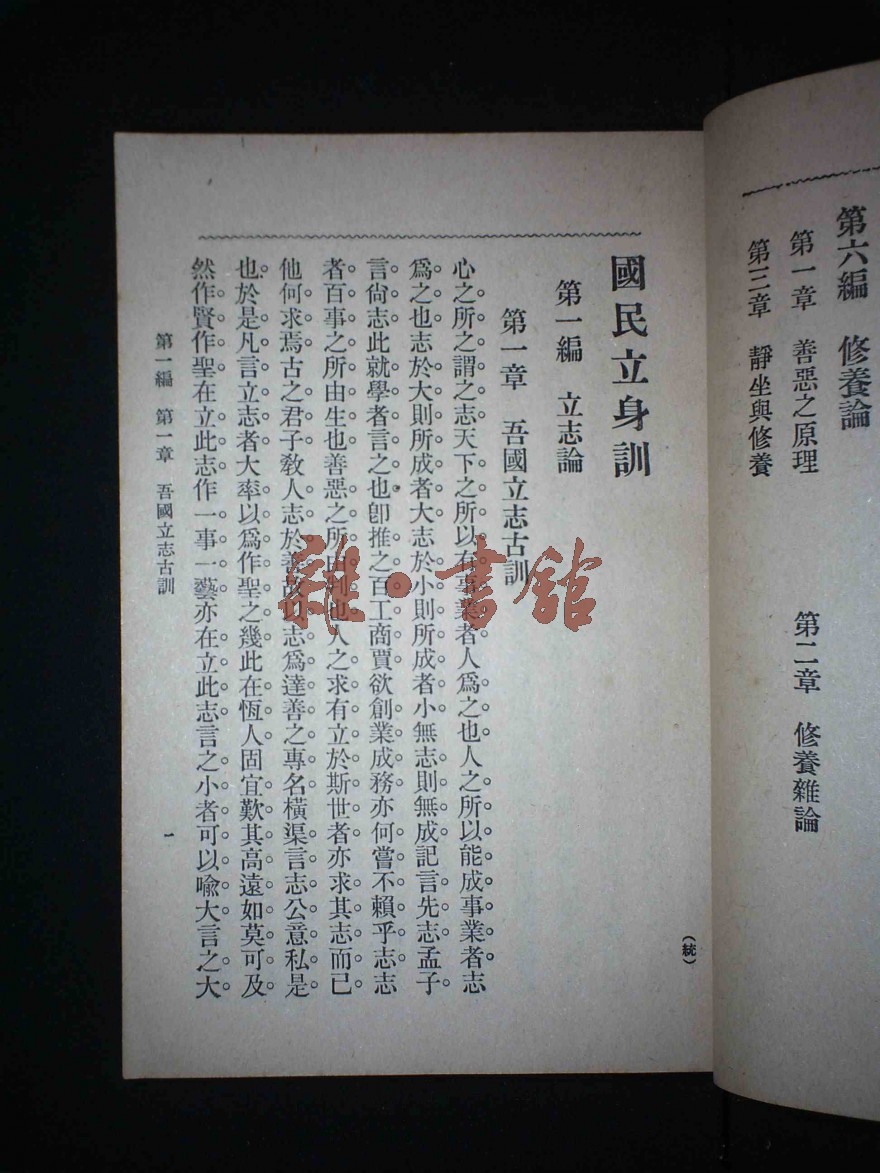 第六編　修養論
第一章　善惡之原理
第二章　修養雜論
第三章　靜坐與修養
（統）
國民立身訓
第一編　立志論
第一章　吾國立志古訓
心之所之謂之志天下之所以有事業者人爲之也人之所以能成事業者志
爲之也志於大則所成者大志於小則所成者小無志則無成記言先志孟子
言尙志此就學者言之也卽推之百工商賈欲創業成務亦何嘗不賴乎志志
者百事之所由生也善惡之所由判也人之求有立於斯世者亦求其志而已
他何求焉古之君子敎人志於善故以志爲達善之專名橫渠言志公意私是
也於是凡言立志者大率以爲作聖之幾此在恆人固宜歎其高遠如莫可及
然作賢作聖在立此志作一事一藝亦在立此志言之小者可以喩大言之大
第一編　第一章　吾國立志古訓
一
雜·書館